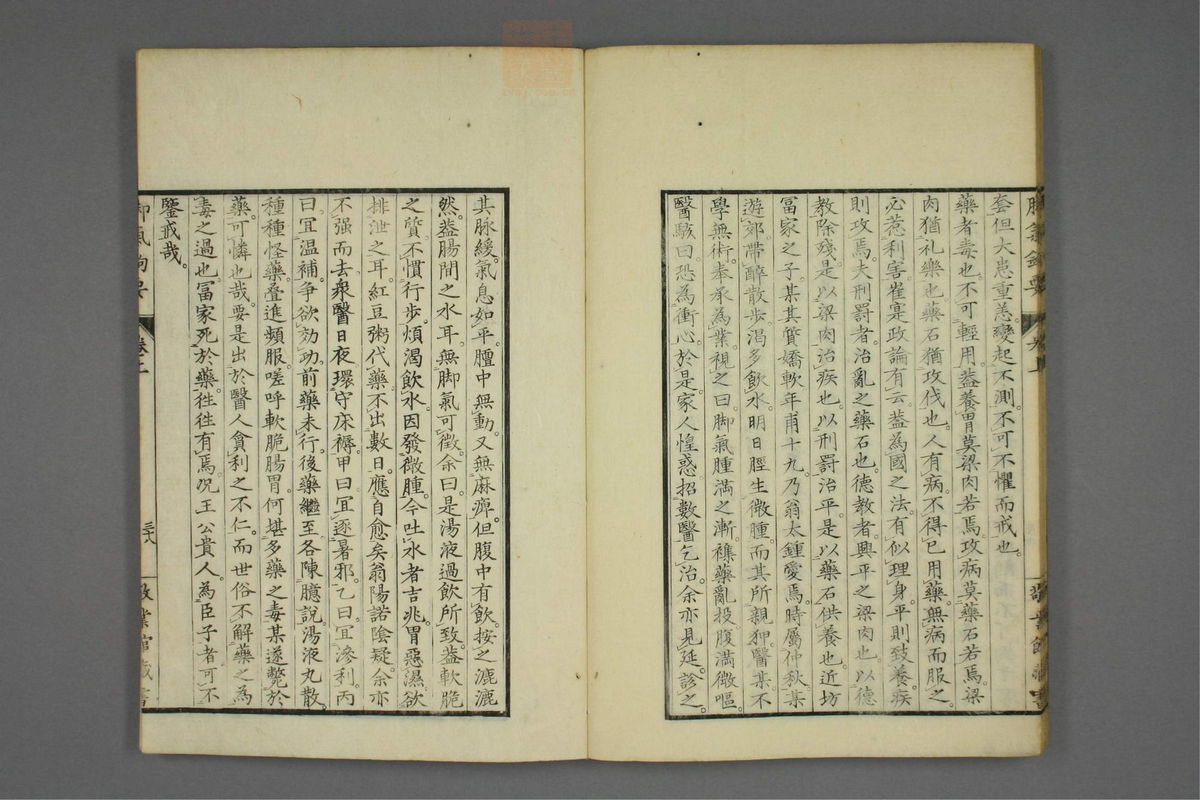 套但大患重恙變起不測不可不懼而戒也
藥者毒也不可輕用蓋養胃莫梁肉若焉攻病莫藥石若焉梁
肉猶礼樂也藥石猶攻伐也人有病不得已用藥無病而服之
必惹利害崔寔政論有云蓋為國之法有似理身平則致養疾
則攻焉夫刑罰者治亂之藥石也德教者興平之梁肉也以德
教除殘是以梁肉治疾也以刑罰治平是以藥石供養也近坊
冨家之子某其質嬌軟年甫十九乃翁太鍾愛焉時屬仲秋某
遊郊帶醉散步渴多飲水明日脛生微腫而其所親狎醫某不
學無術奉承為業視之曰脚氣腫滿之漸襍藥亂投腹滿微嘔
醫駭曰恐為衝心於是家人惶惑招數醫乞治余亦見延診之
其脉緩氣息如平膻中無動又無麻痺但腹中有飲按之漉漉
然蓋腸間之水耳無脚氣可徵余曰是湯液過飲所致蓋軟脆
之質不慣行步煩渴飲水因發微腫今吐水者吉兆胃惡濕欲
排泄之耳紅豆粥代藥不出數日應自愈矣翁陽諾陰疑余亦
不强而去衆醫日夜環守床褥甲曰宜逐暑邪乙曰宜滲利丙
曰宜温補争欲効功前藥未行後藥繼至各陳臆説湯液丸散
種種怪藥疊進頻服嗟呼軟脆腸胃何堪多藥之毒某遂斃於
藥可憐也哉要是出於醫人貪利之不仁而世俗不解藥之為
毒之過也冨家死於藥徃徃有焉况王公貴人為臣子者可不
鑒戒哉
脚氣鉤要
卷上
三十八
敬業館藏書